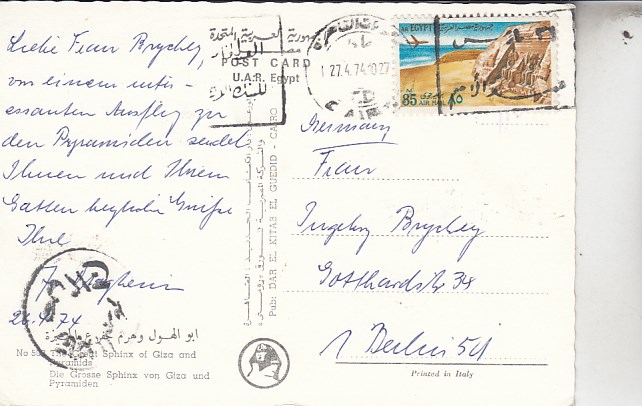 Liebe Frau Brychcy,
von einem inter-
essanten Ausflug zu
den Pyramiden sendet
Ihnen und Ihrem
Gatten herzliche Grüße
Ihre
26.4.74
ابو الهول وهرم خفرع بالجيزة
No 503 The Great Sphinx of Giza and
Pyramids
Die Grosse Sphinx von Giza und
Pyramiden
جمهورية مصر العربية المتحدة
POST CARD
U.A.R. Egypt
Pub: DAR EL KITAB EL GUEDID - CAIRO
27.4.74
AR EGYPT
85 AIR MAIL ٨٥
Germany
Frau
Ingeborg Brychcy
Gotthardstr 34
1 Berlin 51
Printed in Italy